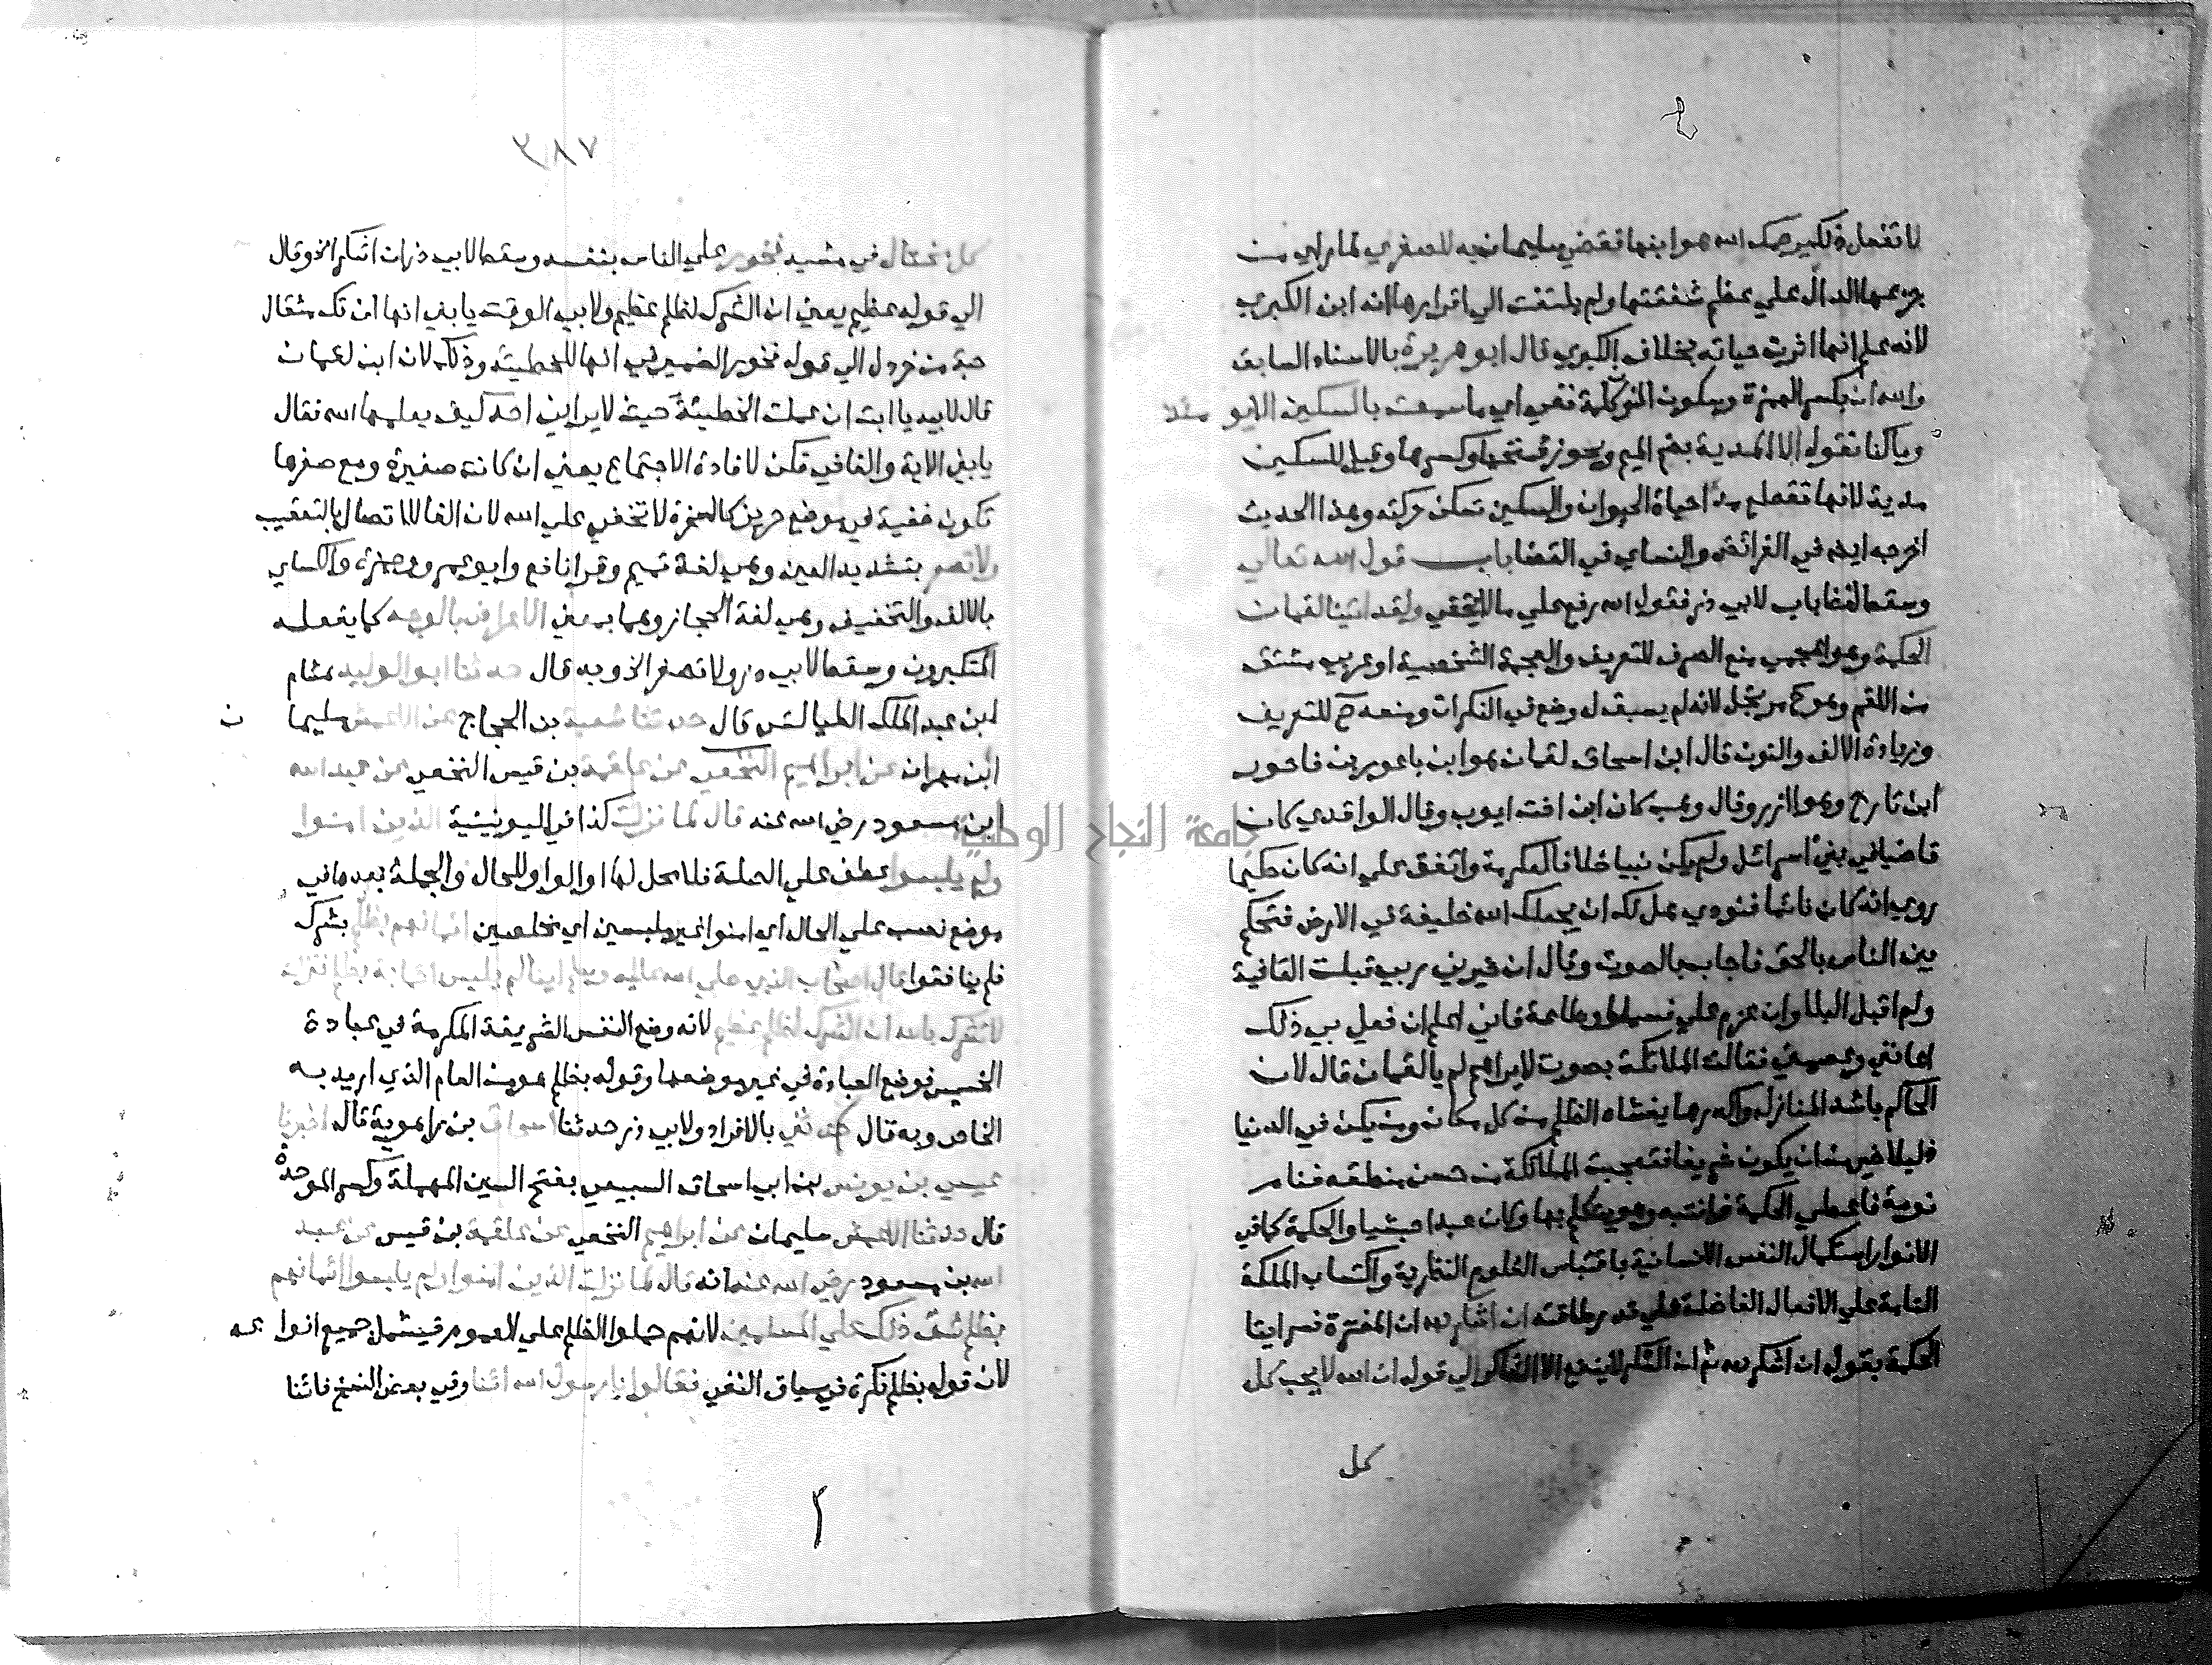 لا تفعل ذلك يرحمك الله هو ابنها فقضى سليمان به للصغري لما راي من
جزعها الدال علي عظم شفقتها ولم يلتفت الي اقرارها انه ابن الكبري
لانه علم انها اثرت حياته بخلاف الكبري قال ابو هريرة بالاسناد السابق
والله ان بكسر الهمزة وسكون النون كلمة نفي اي ما سمعت بالسكين الا يومئذ
وما كنا نقول الا المدية بضم الميم ويجوز فتحها وكسرها وقيل للسكين
مدية لانها تقطع مدا حياة الحيوان والسكين تسكن حركته وهذا الحديث
اخرجه ايضا في الفرائض والنساي في القضا باب قول الله تعالي
وسقط لفظ باب لابي ذر فقول الله رفع علي ما لا يخفي ولقد اتينا لقمان
الحكمة وهو اعجمي منع الصرف للتعريف والعجمة الشخصية او عربي مشتق
من اللقم وهو ح مرتجل لانه لم يسبق له وضع في النكرات ومنعه ح للتعريف
وزيادة الالف والنون قال ابن اسحاق لقمان هو ابن باعور بن ناحور
ابن تارح وهو ازر وقال وهب كان ابن اخت ايوب وقال الواقدي كان
قاضيا في بني اسرائل ولم يكن نبيا خلافا لعكرمة واتفق علي انه كان حكيما
روي انه كان نائما فنودي هل لك ان يجعلك الله خليفة في الارض فتحكم
بين الناس بالحق فاجاب الصوت وقال ان خيرني ربي قبلت العافية
ولم اقبل البلا وان عزم علي فسمعا وطاعة فاني اعلم ان فعل بي ذلك
اعانني وعصمني فقالت الملائكة بصوت لا يراهم لم يا لقمان قال لان
الحاكم باشد المنازل واكدرها يغشاه الظلم من كل مكان ومن يكن في الدنيا
ذليلا خير من ان يكون شريفا فتعجبت الملائكة من حسن منطقه فنام
نومة فاعطي الحكمة فانتبه وهو يتكلم بها وكان عبدا حبشيا والحكمة كما في
الانوار استكمال النفس الانسانية باقتباس العلوم النظرية واكتساب الملكة
التامة علي الافعال الفاضلة علي قدر طاقته ان اشكر لله ان المفسرة فسر ايتا
الحكمة بقوله ان اشكر لله ثم ان الشكر لا ينفع الا الشاكر الي قوله ان الله لا يحب كل
كل
٣٨٧
كل مختال في مشيه فخور علي الناس بنفسه وسقط لابي ذر ان اشكر الخ وقال
الي قوله عظيم يعني ان الشرك لظلم عظيم ولابي الوقت يا بني انها ان تك مثقال
حبة من خردل الي قوله فخور الضمير في انها للخطيئة وذلك لان ابن لقمان
قال لابيه يا ابت ان عملت الخطيئة حيث لا يراني احد كيف يعلمها الله فقال
يا بني الاية والفا في فتكن لافادة الاجتماع يعني ان كانت صغيرة ومع صغرها
تكون خفية في موضع حريز كالصخرة لا تخفي علي الله لان الفا للاتصال بالتعقيب
ولا تصعر بتشديد العين وهي لغة تميم وقرا نافع وابو عمرو وحمزة والكساي
بالالف والتخفيف وهي لغة الحجاز وهما بمعني الاعراض بالوجه كما يفعله
المتكبرون وسقط لابي ذر ولا تصعر الخ وبه قال حدثنا ابو الوليد هشام
ابن عبد الملك الطيالسي قال حدثنا شعبة بن الحجاج عن الاعمش سليمان
ابن مهران عن ابراهيم النخعي عن علقمة بن قيس النخعي عن عبد الله
ابن مسعود رضي الله عنه قال لما نزلت كذا في اليونينية الذين امنوا
ولم يلبسوا عطف علي الصلة فلا محل لها او الواو للحال والجملة بعدها في
موضع نصب علي الحال اي امنوا غير ملبسين اي مخلصين ايمانهم بظلم بشرك
فلم ينافقوا قال اصحاب النبي صلي الله عليه وسلم اينا لم يلبس ايمانه بظلم فنزلت
لا تشرك بالله ان الشرك لظلم عظيم لانه وضع النفس الشريفة المكرمة في عبادة
الخسيس فوضع العبادة في غير موضعها وقوله بظلم هو من العام الذي اريد به
الخاص وبه قال حدثني بالافراد ولابي ذر حدثنا اسحاق بن راهوية قال اخبرنا
عيسي بن يونس بن ابي اسحاق السبيعي بفتح السين المهملة وكسر الموحدة
قال حدثنا الاعمش سليمان عن ابراهيم النخعي عن علقمة بن قيس عن عبد
الله بن مسعود رضي الله عنه انه قال لما نزلت الذين امنوا ولم يلبسوا ايمانهم
بظلم شق ذلك علي المسلمين لانهم حملوا الظلم علي العموم فيشمل جميع انواعه
لان قوله بظلم نكرة في سياق النفي فقالوا يا رسول الله اينا وفي بعض النسخ فاينا
جامعة النجاح الوطنية